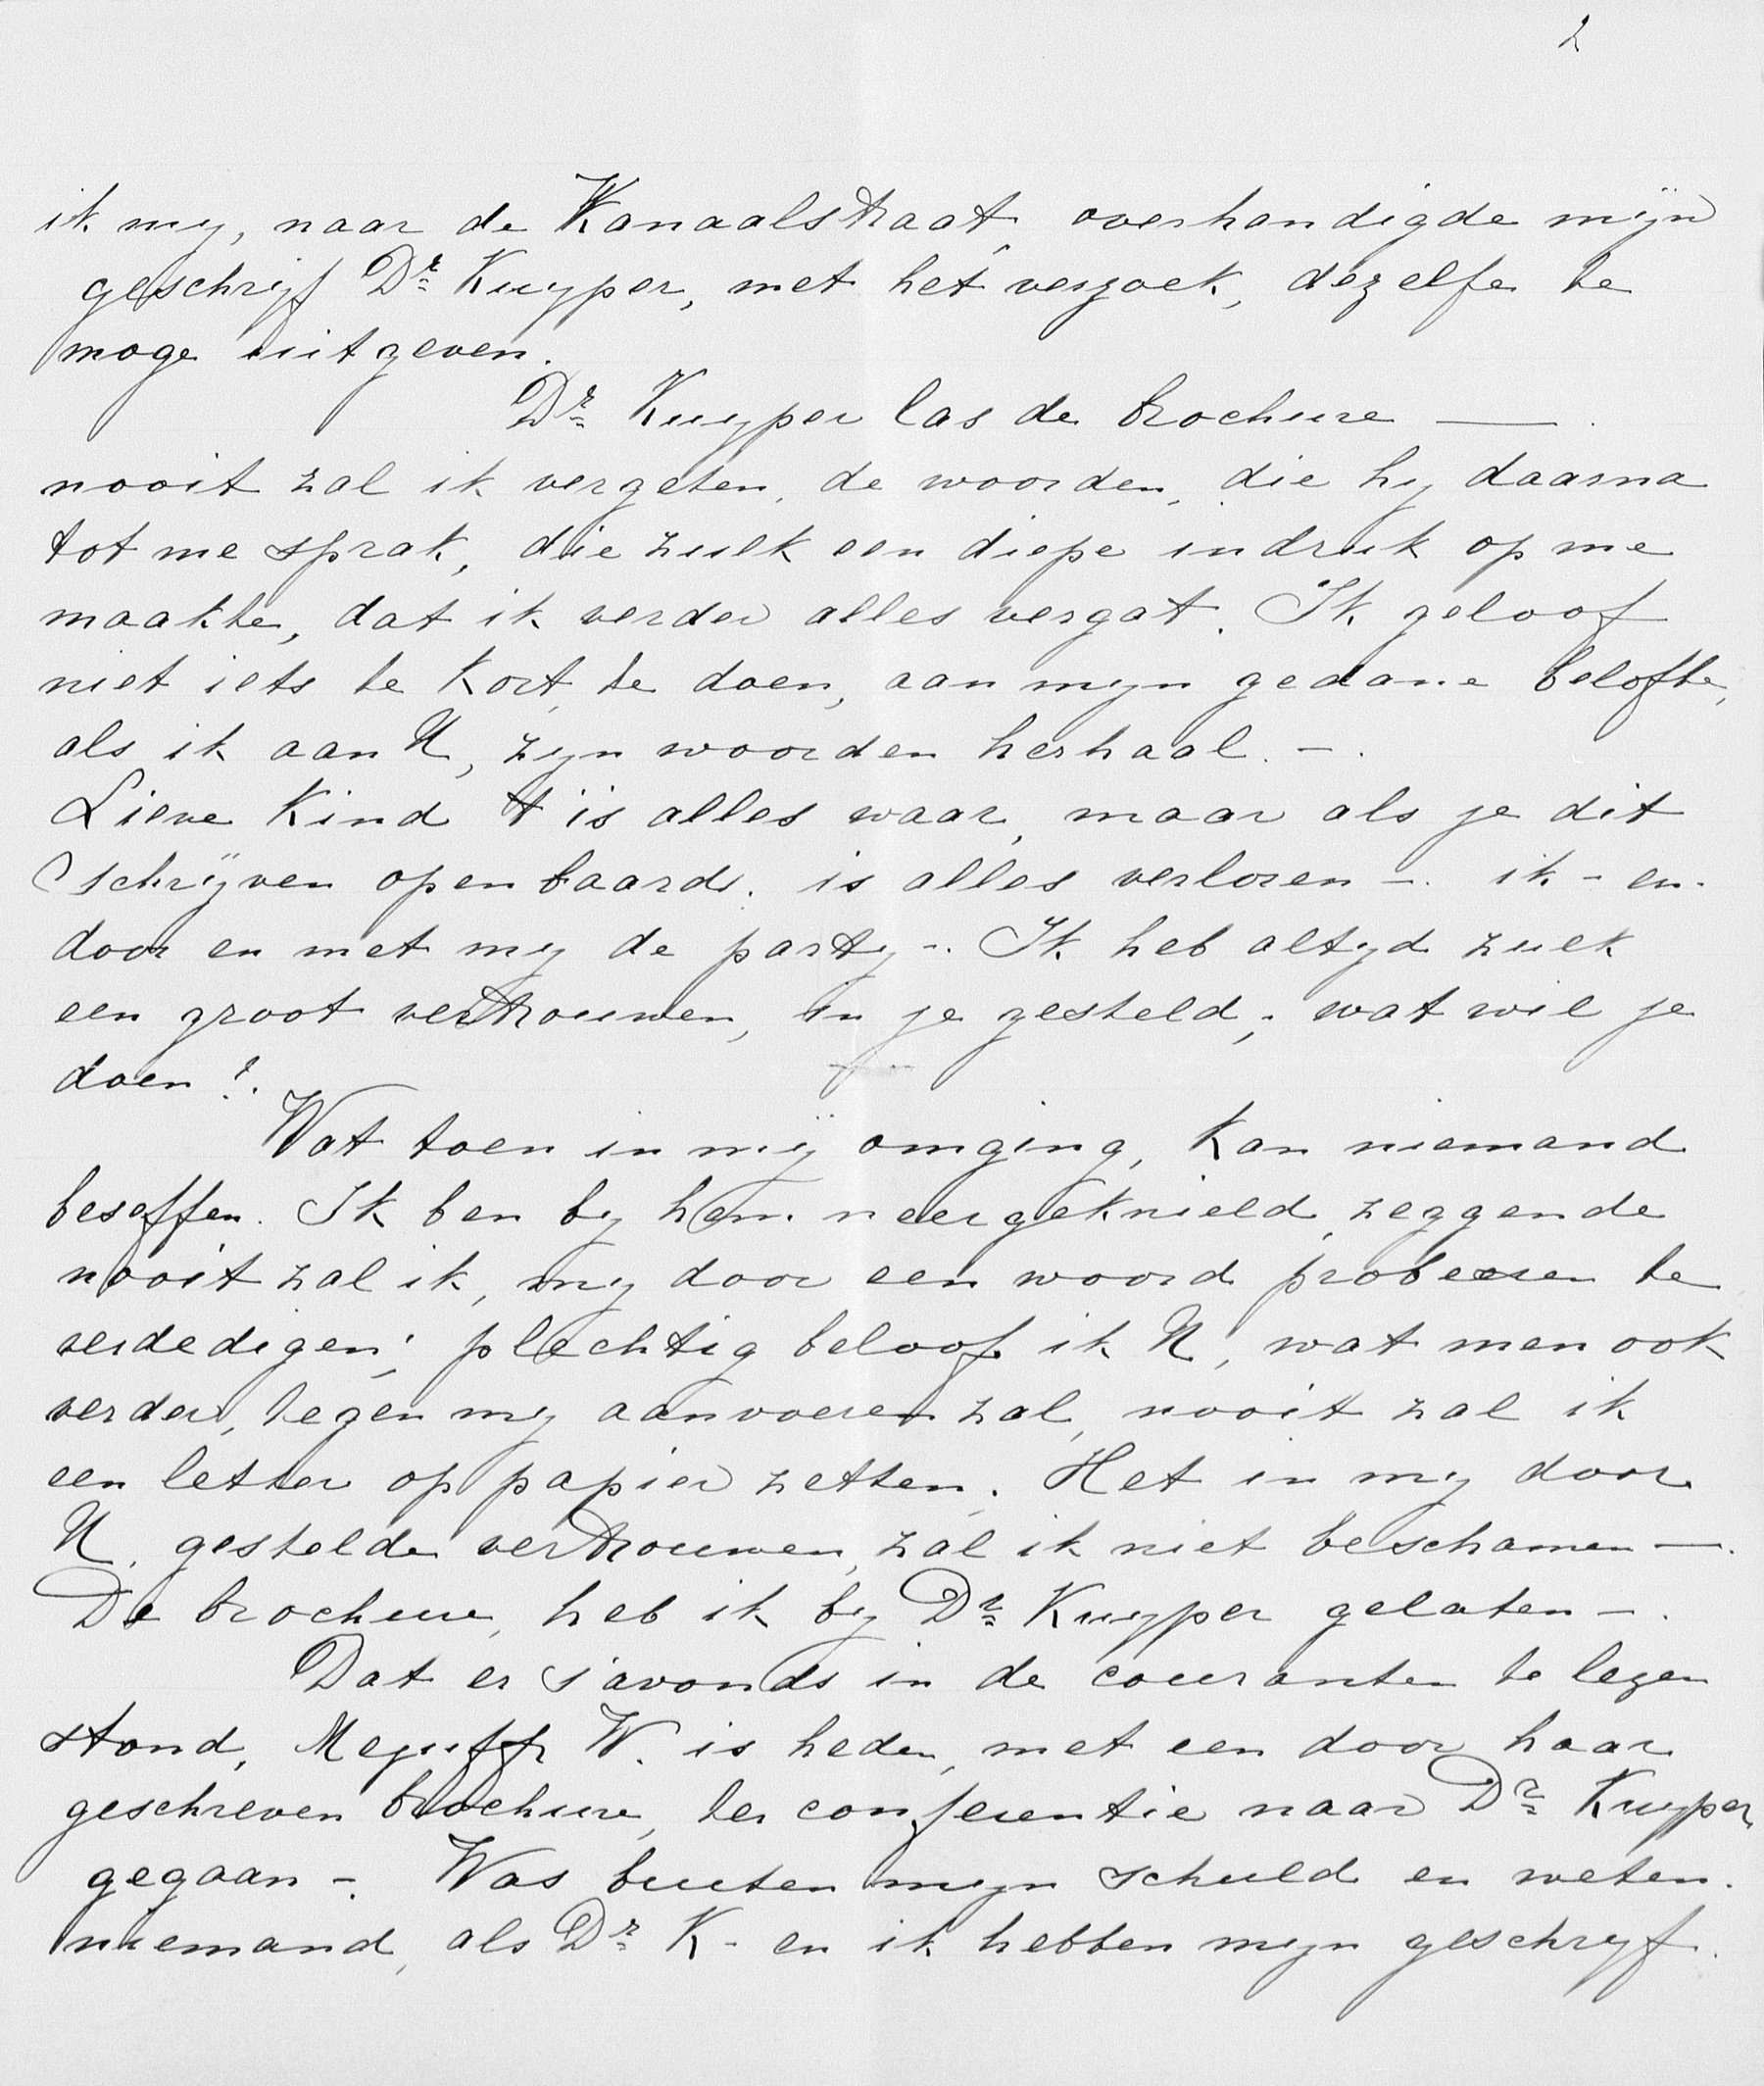 2
ik my, naar de Kanaalstraat, overhandigde mijn
geschrijf Dr. Kuyper, met het verzoek, dezelfe te
moge uitgeven.
Dr. Kuyper las de brochure —.
nooit zal ik vergeten, de woorden, die hy daarna
tot me sprak, die zulk een diepe indruk op me
maakte, dat ik verder alles vergat. Ik geloof
niet iets te kort, te doen, aan myn gedane belofte,
als ik aan U, zyn woorden herhaal. —.
Lieve Kind 't is alles waar, maar als je dit
schrijven openbaards. is alles verloren —. ik - en.
door en met my de party -. Ik heb altyd zulk
een groot vertrouwen, in je gesteld; wat wil je
doen?.
Wat toen in mij omging, kan niemand
beseffen. Ik ben by hem neergeknield, zeggende
nooit zal ik, my door een woord proberen te
verdedigen; plechtig beloof ik U, wat men ook
verder, tegen my aanvoeren zal, nooit zal ik
een letter op papier zetten. Het in my door
U. gestelde vertrouwen, zal ik niet beschamen —.
De brochure, heb ik by Dr. Kuyper gelaten —.
Dat er s'avonds in de couranten te lezen
stond, Mejuffr W. is heden, met een door haar
geschreven brochure, ter conferentie naar Dr. Kuyper,
gegaan -. Was buiten myn schuld en weten.
niemand, als Dr. K - en ik hebben myn geschryf.